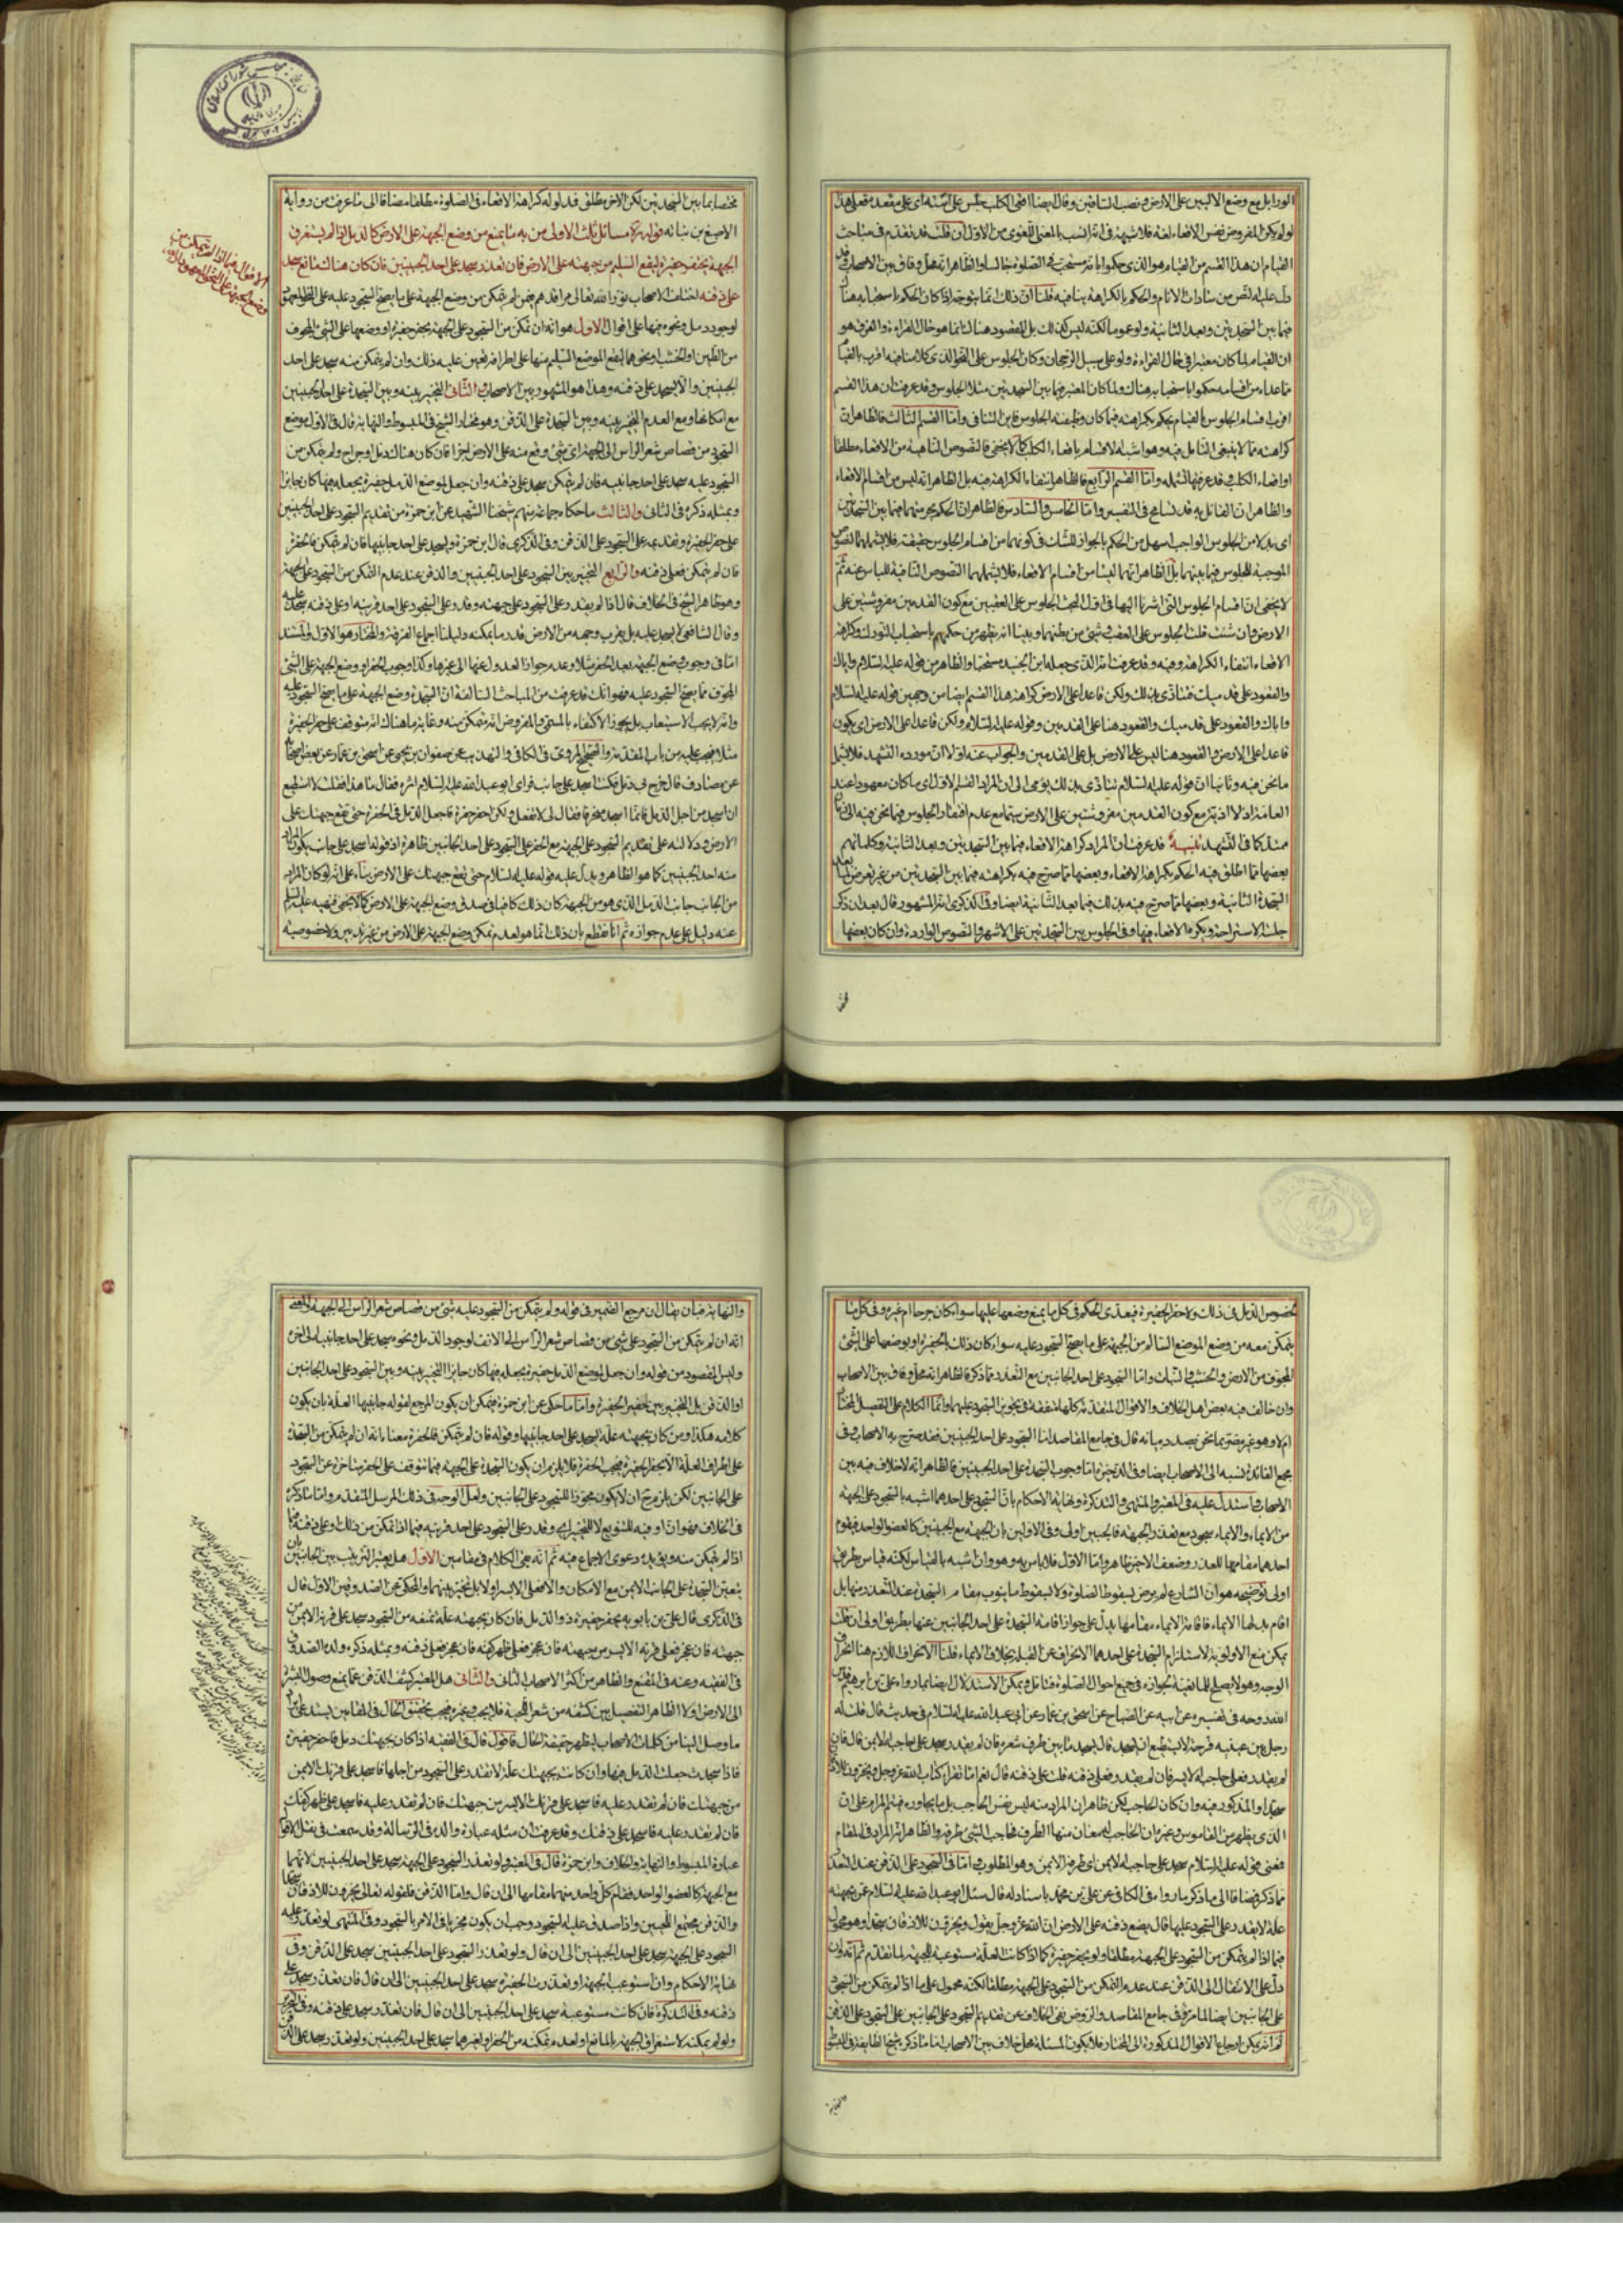 الورا بل مع وضع الاليين على الارض و نصب الساقين وقال ايضا اقعى الكلب جلس على استه اى على مقعده فعلى هذا
لو لم يكن المفروض نفس الاقعاء لغة فلا شبهة فى انه انسب بالمعنى اللغوى من الاول ان قلت قد تقدم فى مباحث
القيام ان هذا القسم من القيام هو الذى حكموا بانه مستحب فى الصلوة جالسا والظاهر انه محل وفاق بين الاصحاب وقد
دل عليه النص من سادات الانام والحكم بالكراهة ينافيه قلنا ان ذلك انما يتوجه اذا كان الحكم باستحبابه هنا
فيما بين السجدتين وبعد الثانية ولو عموما لكنه ليس كذلك بل المقصود هناك انما هو حال القراءة والفرق هو
ان القيام لما كان معتبرا فى حال القراءة ولو على سبيل الرجحان وكان الجلوس على النحو الذى كلامنا فيه اقرب بالقيام
ما عداه من اقسامه حكموا باستحبابه هناك ولما كان المعتبر فيما بين السجدتين مثلا الجلوس وقد عرفت ان هذا القسم
اقرب اقسام الجلوس بالقيام يحكم بكراهته فيما كان وظيفته الجلوس فاين التنافى واما القسم الثالث فالظاهر ان
كراهته مما لا ينبغى التامل فيه وهو اشبه الاقسام باقعاء الكلب كما لا يخفى فالنصوص الناهية من الاقعاء مطلقا
او اقعاء الكلب قد عرفتها تشمله واما القسم الرابع فالظاهر انتفاء الكراهة فيه بل الظاهر انه ليس من اقسام الاقعاء
والظاهر ان القائل به قد تسامح فى التفسير واما الخامس والسادس فالظاهر ان الحكم بحرمتهما فيما بين السجدتين
اى بدلا من الجلوس الواجب اسهل من الحكم بالجواز للشك فى كونهما من اقسام الجلوس حقيقة فلا يشملهما النصوص
الموجبة للجلوس فيما بينهما بل الظاهر انهما ليسا من اقسام الاقعاء فلا يشملهما النصوص النافية للباس عنه ثم
لا يخفى ان اقسام الجلوس التى اشرنا اليها فى اول البحث الجلوس على العقبين مع كون القدمين مفروشتين على
الارض وان شئت قلت الجلوس على العقب وشئ من بطنهما وبينا انه يظهر من حكمهم باستحباب التورك وكراهة
الاقعاء انتفاء الكراهة وفيه وقد عرفت انه الذى جعله ابن الجنيد مستحبا والظاهر من قوله عليه السلام واياك
والقعود على قدميك فتتاذى بذلك ولكن قاعدا على الارض كراهة هذا القسم ايضا من وجهين قوله عليه السلام
واياك والقعود على قدميك والقعود هنا على القدمين وقوله عليه السلام ولكن قاعدا على الارض اى يكون
قاعدا على الارض والقعود هنا ليس على الارض بل على القدمين والجواب عنه اولا ان مورده التشهد فلا يشمل
ما نحن فيه وثانيا ان قوله عليه السلام تتاذى بذلك يومى الى ان المراد القسم الاول اى ما كان معهودا عند
العامة اذ لا اذية مع كون القدمين مفروشتين على الارض سيما مع عدم افتقار الجلوس فيما نحن فيه الى زمان
ممتد كما فى التشهد تنبيه قد عرفت ان المراد كراهة الاقعاء فيما بين السجدتين وبعد الثانية وكلماتهم
بعضها مما اطلق فيه الحكم بكراهة الاقعاء وبعضها مما صرح فيه بكراهته فيما بين السجدتين من غير تعرض لما بعد
السجدة الثانية وبعضها مما صرح فيه بذلك فيما بعد الثانية ايضا وفى الذكرى انه المشهور قال بعد ان ذكر
جلسة الاستراحة ويكره الاقعاء فيها وفى الجلوس بين السجدتين على الاشهر والنصوص الواردة وان كان بعضها
مختصا بما بين السجدتين لكن الاخر مطلق فمدلوله كراهة الاقعاء فى الصلوة مطلقا مضافا الى ما عرفت من رواية
الاصبغ بن نباته قوله ره مسائل ثلث الاولى من به ما يمنع من وضع الجبهة على الارض كالدمل اذا لم يستغرق
الجبهة يحتفر حفيرة ليقع السليم من جبهته على الارض فان تعذر سجد على احد الجبينين فان كان هناك مانع سجد
على ذقنه اختلف الاصحاب نور الله تعالى مراقدهم فيمن لم يتمكن من وضع الجبهة على ما يصح السجود عليه على النحو المعهود
لوجود دمل ونحوه فيها على اقوال الاول هو انه ان تمكن من السجود على الجبهة بحفر حفيرة او وضعها على الشئ المجوف
من الطين او الخشب او نحوهما ليقع الموضع السليم منها على اطرافه تعين عليه ذلك وان لم يتمكن منه سجد على احد
الجبينين والا يسجد على ذقنه وهذا هو المشهور بين الاصحاب والثانى التخيير بينه وبين السجدة على احد الجبينين
مع امكانها ومع العدم التخيير بينه وبين السجدة على الذقن وهو مختار الشيخ فى المبسوط والنهاية قال فى الاول موضع
السجود من قصاص شعر الراس الى الجبهة اى شئ وقع منه على الارض اجزا فان كان هناك دمل او جراح ولم يتمكن من
السجود عليه سجد على احد جانبيه فان لم يتمكن سجد على ذقنه وان جعل لموضع الدمل حفيرة يجعله فيها كان جايزا
وبمثله ذكره فى الثانى والثالث ما حكاه جماعة منهم شيخنا الشهيد عن ابن حمزة من تقديم السجود على احد الجبينين
على حفر الحفيرة وتقديمه على السجود على الذقن وفى الذكرى قال ابن حمزة ويسجد على احد جانبيها فان لم يتمكن فالحفرة
فان لم يتمكن فعلى ذقنه والرابع التخيير بين السجود على احد الجبينين والذقن عند عدم التمكن من السجود على الجبهة
وهو ظاهر الشيخ فى الخلاف قال اذا لم يقدر على السجود على جبهته وقدر على السجود على احد قرنيه او على ذقنه سجد عليه
وقال الشافعى لا يسجد عليه بل يقرب وجهه من الارض قدر ما يمكنه دليلنا اجماع الفرقة والمختار هو الاول والمستند
اما فى وجوب وضع الجبهة بعد الحفر مثلا وعدم جواز العدول عنها الى غيرها وكذا وجوب الحفر او وضع الجبهة على الشئ
المجوف مما يصح السجود عليه فهو انك قد عرفت من المباحث السالفة ان السجدة وضع الجبهة على ما يصح السجود عليه
وانه لا يجب الاستيعاب بل يجوز الاكتفاء بالمسمى والمفروض انه متمكن منه وغاية ما هناك انه متوقف على حفر الحفيرة
مثلا فيجب عليه من باب المقدمة والصحيح المروى فى الكافى والتهذيب عن صفوان بن يحيى عن اسحق بن عمار عن بعض اصحابه
عن مصادف قال خرج بى دمل فكنت اسجد على جانب فراى ابو عبد الله عليه السلام اثره فقال ما هذا فقلت لا استطيع
ان اسجد من اجل الدمل فانما اسجد منحرفا فقال لى لا تفعل ولكن احفر حفيرة فاجعل الدمل فى الحفرة حتى تقع جبهتك على
الارض ودلالته على تقديم السجود على الجبهة مع الحفر على السجود على احد الجانبين ظاهرة اذ قوله اسجد على جانب يكون المراد
منه احد الجبينين كما هو الظاهر ويدل عليه قوله عليه السلام حتى تقع جبهتك على الارض بناء على انه لو كان المراد
من الجانب جانب الدمل الذى هو من الجبهة كان ذلك كافيا وصدق وضع الجبهة على الارض كما لا يخفى فنهيه عليه السلام
عنه دليل على عدم جوازه ثم انا نقطع بان ذلك انما هو لعدم تمكن وضع الجبهة على الارض من غير تدبير ولا خصوصية
لخصوص الدمل فى ذلك ولا حفر الحفيرة فيتعدى الحكم فى كل ما يمنع وضعها عليها سواء كان جرحا ام غيره وفى كل ما
يتمكن معه من وضع الموضع السالم من الجبهة على ما يصح السجود عليه سواء كان ذلك بالحفيرة او بوضعها على الشئ
المجوف من الارض والخشب والنبات واما السجود على احد الجانبين مع التعذر مما ذكر فالظاهر انه محل وفاق بين الاصحاب
وان خالف فيه بعض اهل الخلاف والاقوال المتقدمة كلها متفقة فى تجويز السجود عليهما وانما الكلام على التفصيل المختار
ام لا وهو غير مضر بما نحن بصدد بيانه قال فى جامع المقاصد اما السجود على احد الجبينين فقد صرح به الاصحاب وفى
مجمع الفائدة نسبه الى الاصحاب ايضا وفى الذخيرة اما وجوب السجدة على احد الجبينين فالظاهر انه لا خلاف فيه بين
الاصحاب واستدل عليه فى المعتبر والمنتهى والتذكرة ونهاية الاحكام بان السجود على احدهما اشبه بالسجود على الجبهة
من الايماء والايماء سجود مع تعذر الجبهة فالجبين اولى وفى الاولين بان الجبهة مع الجبينين كالعضو الواحد فيقوم
احدهما مقامها للعذر وضعف الاخير ظاهر واما الاول فلا باس به وهو وان اشبه بالقياس لكنه قياس بطريق
اولى توضيحه هو ان الشارع لم يرض بسقوط الصلوة ولا بسقوط ما ينوب مقام السجدة عند التعذر منها بل
اقام بدلها الايماء فاقامة الايماء مقامها يدل على جواز اقامة السجدة على احد الجانبين عنها بطريق اولى ان قلت
يمكن منع الاولوية لاستلزام السجدة على احدهما الانحراف عن القبلة بخلاف الايماء قلنا الانحراف اللازم هنا انحراف
الوجه وهو لا يصلح للمانعية لجوازه فى جميع احوال الصلوة فتامل ويمكن الاستدلال ايضا بما رواه على بن ابرهيم قدس
الله روحه فى تفسيره عن ابيه عن الصباح عن اسحق بن عمار عن ابى عبد الله عليه السلام فى حديث قال قلت له
رجل بين عينيه قرحة لا يستطيع ان يسجد قال يسجد ما بين طرف شعره فان لم يقدر سجد على حاجبه الايمن قال فان
لم يقدر فعلى حاجبه الايسر فان لم يقدر فعلى ذقنه قلت على ذقنه قال نعم اما تقرا كتاب الله عز وجل ويخرون للاذقان
سجدا والمذكور فيه وان كان الحاجب لكن ظاهر ان المراد منه ليس نفس الحاجب بل ما يجاوره فيتم المرام على ان
الذى يظهر من القاموس وغيره ان الحاجب له معان منها الطرف فحاجب الشئ طرفه والظاهر انه المراد فى المقام
فمعنى قوله عليه السلام سجد على حاجبه الايمن اى طرفه الايمن وهو المطلوب واما فى السجود على الذقن عند التعذر
مما ذكر فمضافا الى ما ذكر ما رواه فى الكافى عن على بن محمد باسناد له قال سئل ابو عبد الله عليه السلام عمن بجبهته
علة لا يقدر على السجود عليها قال يضع ذقنه على الارض ان الله عز وجل يقول ويخرون للاذقان سجدا وهو محمول
فيما اذا لم يتمكن من السجود على الجبهة مطلقا ولو بحفر حفيرة كما اذا كانت العلة مستوعبة للجبهة لما تقدم ثم انه وان
دل على الانتقال الى الذقن عند عدم التمكن من السجود على الجبهة مطلقا لكنه محمول على ما اذا لم يتمكن من السجود
على الجانبين ايضا لما مر وفى جامع المقاصد والروض نفى الخلاف عن تقديم السجود على الجانبين على السجود على الذقن
ثم انه يمكن ارجاع الاقوال المذكورة الى المختار فلا يكون المسئلة محل خلاف بين الاصحاب اما ما ذكره شيخ الطايفة فى المبسوط
والنهاية فبان يقال ان مرجع الضمير فى قوله ولم يتمكن من السجود عليه شئ من قصاص شعر الراس الى الجبهة والمعنى
انه ان لم يتمكن من السجود على شئ من قصاص شعر الراس الى الانف لوجود الدمل ونحوه سجد على احد جانبيه الى اخره
وليس المقصود من قوله وان جعل لموضع الدمل حفيرة يجعله فيها كان جايزا التخيير بينه وبين السجود على احد الجانبين
او الذقن بل التخيير بين الحفيرة واما ما حكى عن ابن حمزة فيمكن ان يكون المرجع لقوله جانبيها العلة بان يكون
كلامه هكذا ومن كان بجبهته علة ليسجد على احد جانبيها وقوله فان لم يتمكن فالحفرة معناه انه ان لم يتمكن من السجدة
على اطراف العلة الا بحفر الحفيرة فيجب الحفرة فلا يلزم ان يكون السجدة على الجبهة فيما تتوقف على الحفر متاخرة عن السجود
على الجانبين لكن يلزم ح ان لا يكون مجوزا للسجود على الجانبين ولعل الوجه فى ذلك المرسل المتقدم واما ما ذكره
فى الخلاف فهو ان او فيه للتنويع لا للتخيير اى وقدر على السجود على احد قرنيه فيما اذا تمكن من ذلك او على ذقنه فيما
اذا لم يتمكن منه ويؤيده دعوى الاجماع فيه ثم انه بقى الكلام فى مقامين الاول هل يعتبر الترتيب بين الجانبين بان
يتعين السجدة على الجانب الايمن مع الامكان والا فعلى الايسر او لا بل تخير بينهما والمحكى عن الصدوقين الاول قال
فى الذكرى قال على بن بابويه يحفر حفيرة ذو الدمل فان كان بجبهته علة تمنعه من السجود سجد على قرنه الايمن من
جبهته فان عجز فعلى قرنه الايسر من جبهته فان عجز فعلى ظهر كفه فان عجز فعلى ذقنه وبمثله ذكره ولده الصدوق
فى الفقيه وعنه فى المقنع والظاهر من اكثر الاصحاب الثانى والثانى هل المعتبر كشف الذقن عما يمنع وصول البشرة
الى الارض او لا الظاهر التفصيل بين كثفه من شعر اللحية فلا يجب وغيره فيجب تحقيق الحال فى المقامين يستدعى ايراد
ما وصل الينا من كلمات الاصحاب ليظهر حقيقة الحال فاقول قال فى الفقيه اذا كان بجبهتك دمل فاحفر حفيرة
فاذا سجدت جعلت الدمل فيها وان كانت بجبهتك علة لا تقدر على السجود من اجلها فاسجد على قرنك الايمن
من جبهتك فان لم تقدر عليه فاسجد على قرنك الايسر من جبهتك فان لم تقدر عليه فاسجد على ظهر كفك
فان لم تقدر عليه فاسجد على ذقنك وقد عرفت ان مثله عبارة والده فى الرسالة وقد سمعت فى نقل الاقوال
عبارة المبسوط والنهاية والخلاف وابن حمزة قال فى المعتبر ولو تعذر السجود على الجبهة سجد على احد الجبينين لانهما
مع الجبهة كالعضو الواحد فقام كل واحد منهما مقامها الى ان قال واما الذقن فلقوله تعالى يخرون للاذقان سجدا
والذقن مجتمع اللحيين واذا صدق عليه السجود وجب ان يكون مجزيا فى الامر بالسجود وفى المنتهى لو تعذر عليه
السجود على الجبهة سجد على احد الجبينين الى ان قال ولو تعذر السجود على احد الجبينين سجد على الذقن وفى
نهاية الاحكام وان استوعب الجبهة او تعذرت الحفيرة سجد على احد الجبينين الى ان قال فان تعذر سجد على
ذقنه وفى التذكرة فان كانت مستوعبة سجد على احد الجبينين الى ان قال فان تعذر سجد على ذقنه وفى التحرير
ولو لم يمكنه لاستغراق الجبهة بالمانع او لعدم تمكنه من الحفر او لغيرهما سجد على احد الجبينين ولو تعذر سجد على الذقن